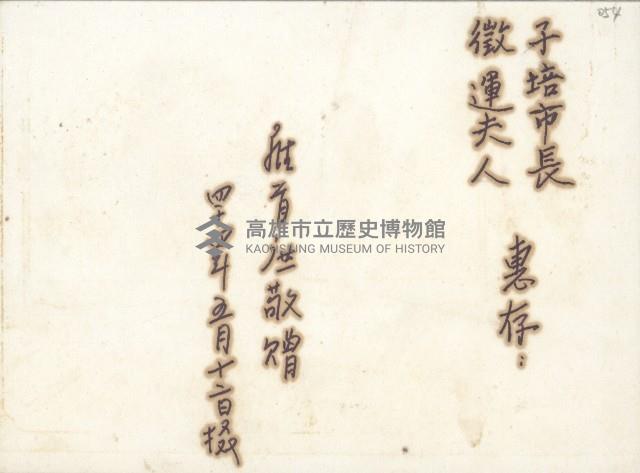 054
子培市長
徵運夫人
惠存：
敬贈
四十四年五月十二日攝
高雄市立歷史博物館
KAOHSIUNG MUSEUM OF HISTORY